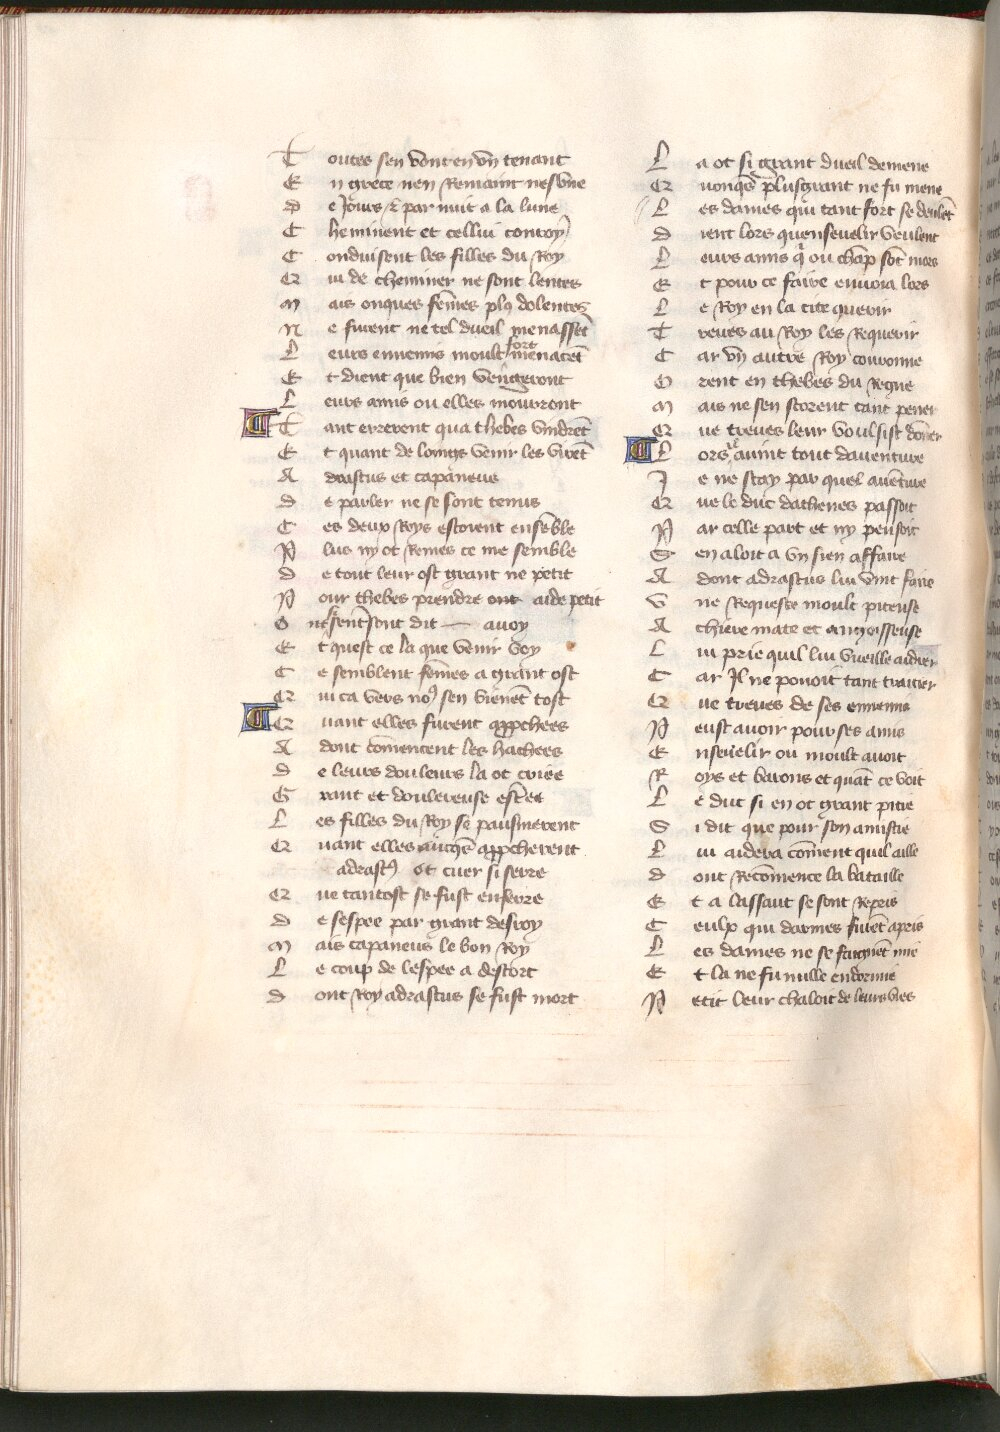 Toutes sen vont en vn tenant
En grece nen Remaint nesvne
de Jours & par nuit a la lune
Cheminent et cellui conroy
Conduisent les filles du Roy
Qui de cheminer ne sont lentes
Mais onques fem̄es pl9 dolentes
Ne furent ne tel dueil menassēt
Leurs ennemis moult fort menacēt
Et dient que bien vengeront
Leurs amis ou elles mourront
Tant errerent qua thebes vindrēt
Et quant de loings venir les virēt
Adrastus et capaneus
de parler ne se sont tenus
Ces deux Roys estoient ensēble
Plus ny ot Remes ce me semble
de tout leur ost grant ne petit
Pour thebes prendre ont aide petit
dit — auoy
Et quest ce la que venir voy
Ce semblent fem̄es a grant ost
Qui ca vers no9 sen vienēt tost
Quant elles furent app̄chees
Adont com̄encent les hachees
de leurs douleurs la ot criée
Grant et douleureuse
Les filles du Roy se pausmerent
Quant elles app̄cherent
adrast9 ot cuer si serre
Que tantost se fust enferre
de sespee par grant desroy
Mais capaneus le bon Roy
Le coup de lespee a destort
dont Roy adrastus se fust mort
La ot si grant dueil demene
Quonq̄s plusgrant ne fu mene
Les dames qui tant fort se deulēt
dient lors quenseuelir veulent
Leurs amis q̄ ou chāp sōt mors
Et pour ce faire enuoia lors
Le Roy en la cite querir
Treues au Roy les Requerir
Car vn autre Roy couronne
Orent en thebes du Regne
Mais ne sen scorent tant pener
Que treues leur voulsist dōner
Lors auint tout dauenture
Je ne scay par quel auēture
Que le duc dathenes passoit
Par celle part et ny pensoit
Sen aloit a vn sien affaire
Adont adrastus lui vint faire
Vne Requeste moult piteuse
A chiere mate et angoisseuse
Lui prie quil lui vueille aidier
Car Il ne pouoit tant traitier
Que treues de ses ennemis
Peust auoir pour ses amis
Enseuelir ou moult auoit
Roys et barons et quāt ce voit
Le duc si en ot grant pitie
Si dit que pour son amistie
Lui aidera com̄ent quil aille
dont Recōmence la bataille
Et a lassaut se sont Repris
Ceulx qui darmes furēt apris
Les dames ne se faignēt mie
Et la ne fu nulle endormie
Petit leur chaloit de leurs vies